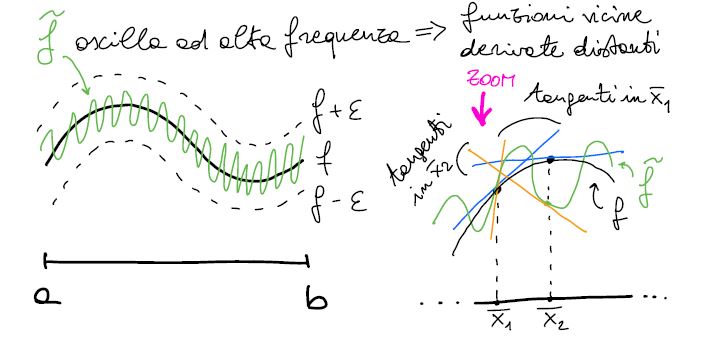 f̃ oscilla ad alta frequenza ⇒ funzioni vicine
derivate distanti
f + ε
f
f - ε
a
b
ZOOM
tangenti in x̄₁
tangenti
in x̄₂
f̃
f
... x̄₁ x̄₂ ...